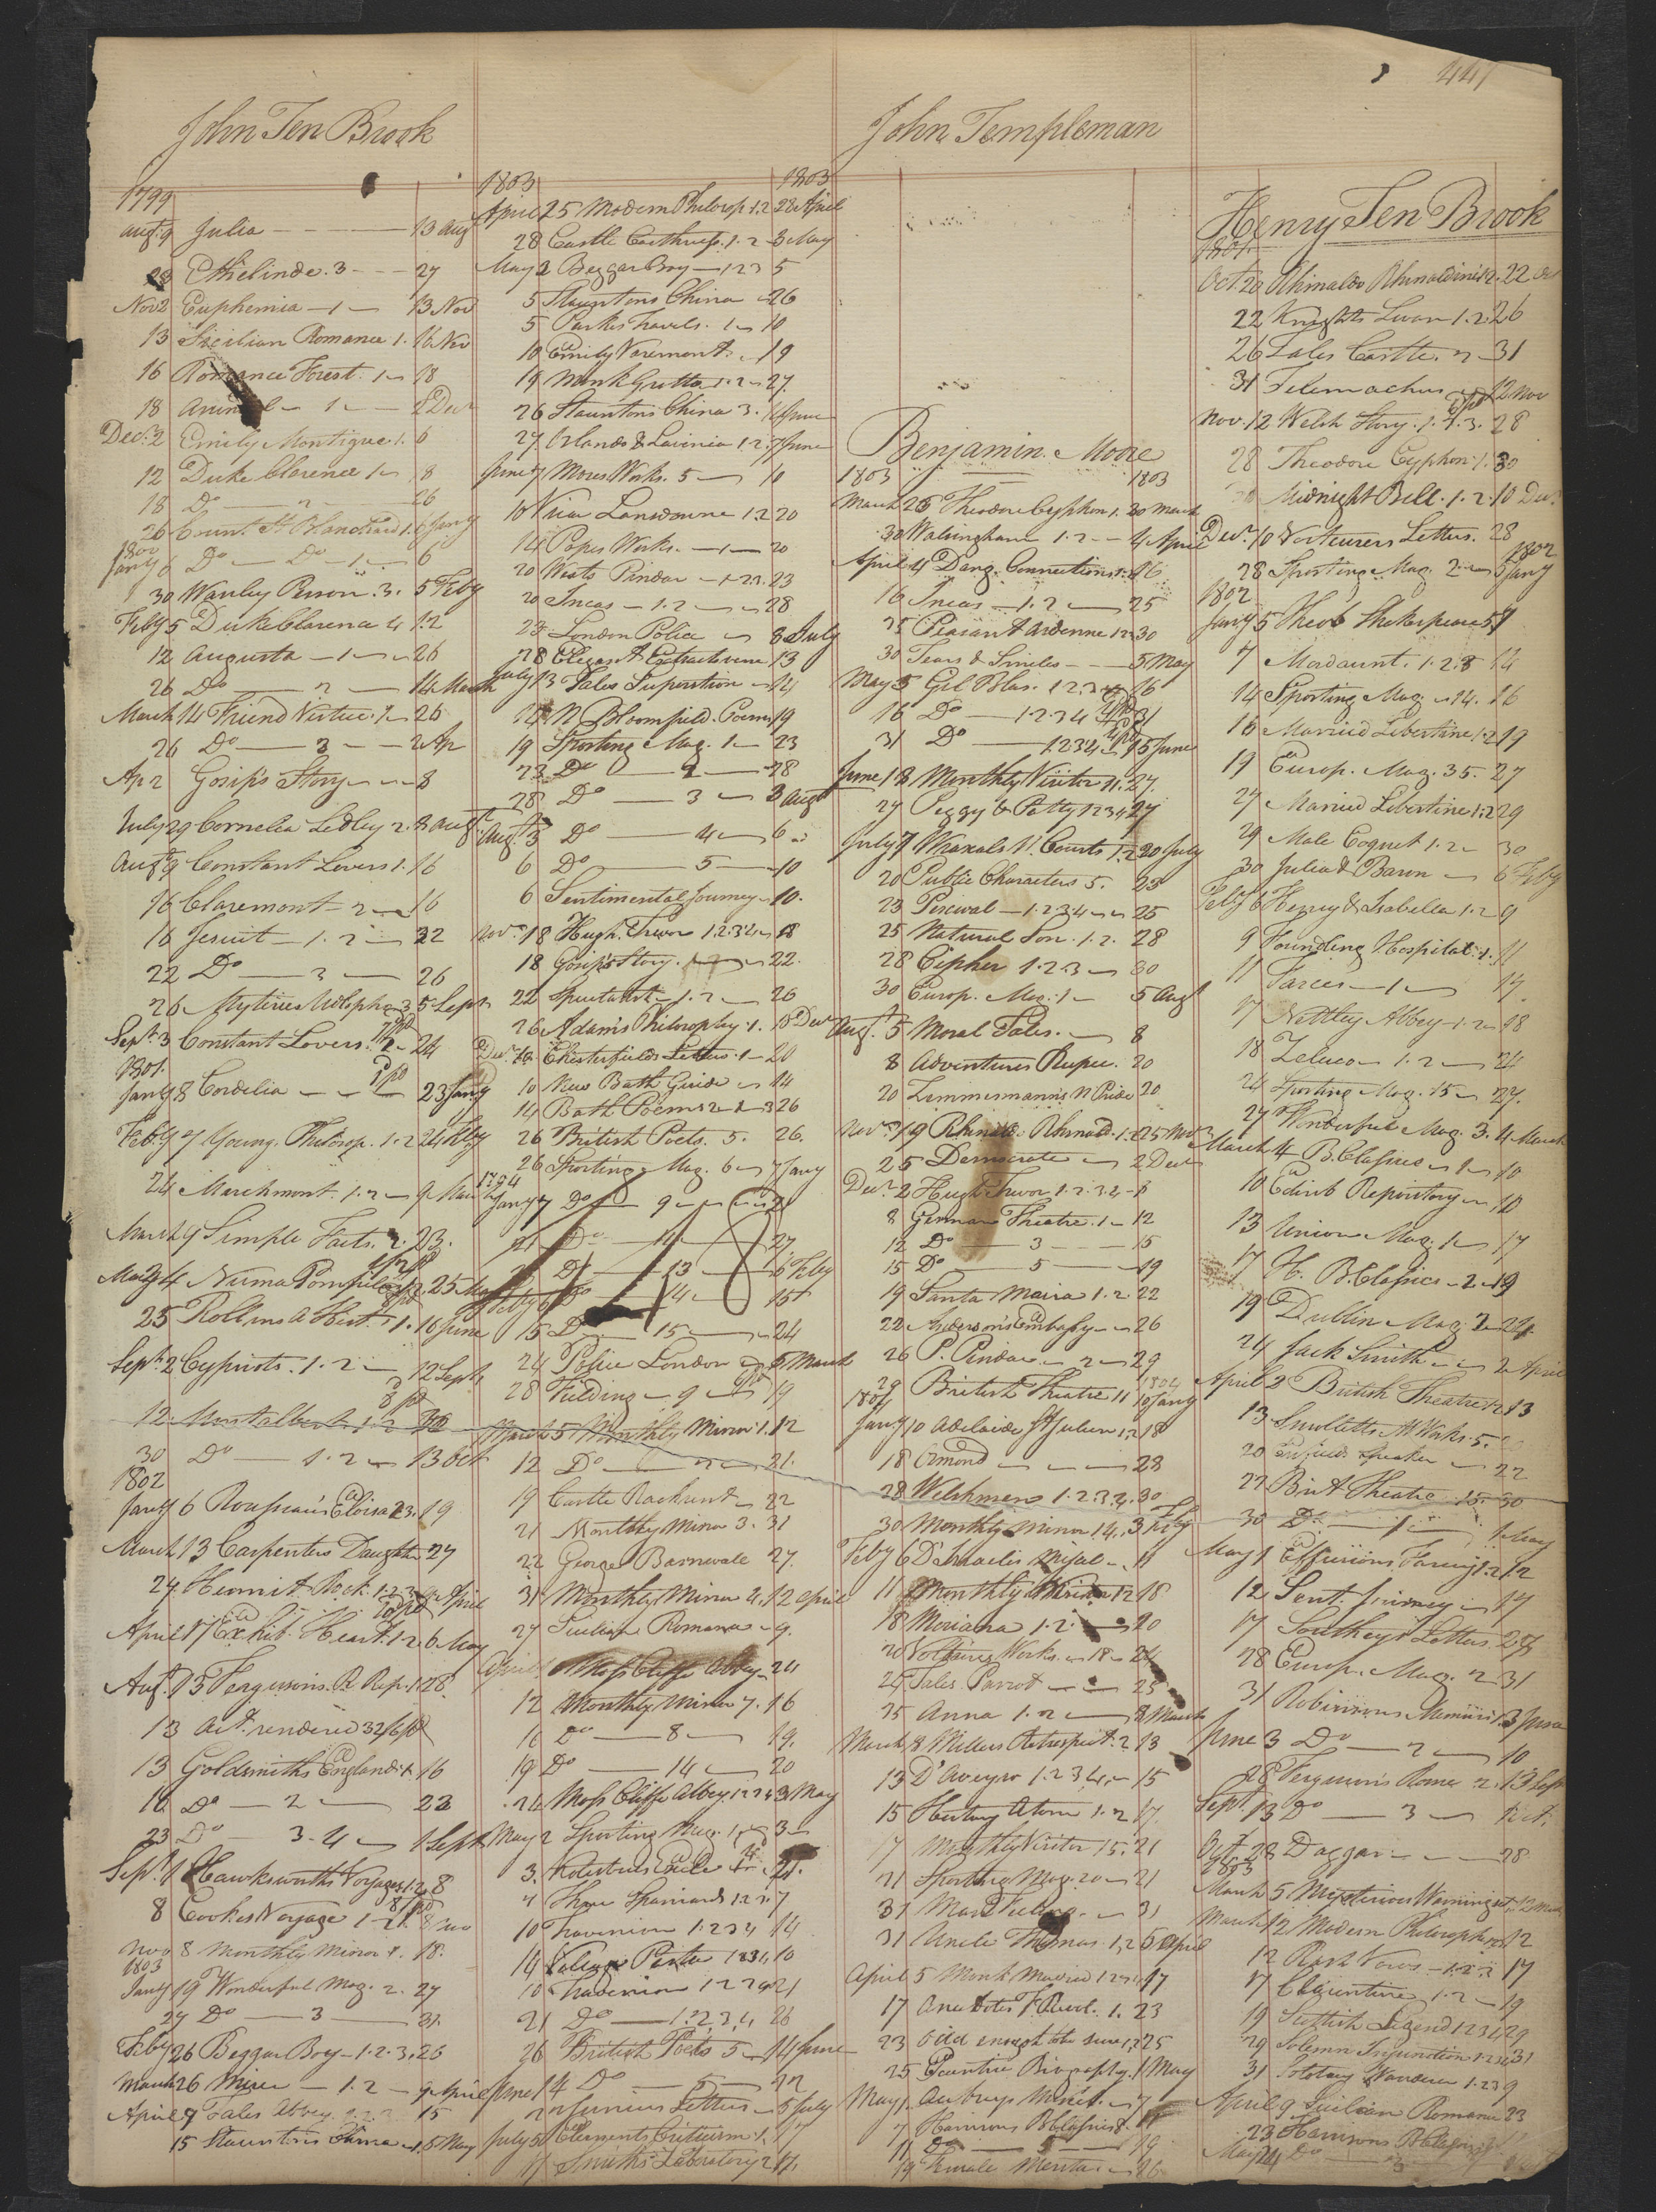 441
John Ten Brook
1799
Augt. 9 Julia 13 Aug
23 Ethelinde. 3 27
Nov 2 Euphemia 1 13 Nov
13 Sicilian Romance 1. 16 Nov
16 Romance Forest. 1 18
18 2 Decr
Decr. 2 Emily Montigue 1. 6
12 Duke Clarence 1 18
18 Do 2 26
26 Count St Blanchard 1. 6 Jany
1800
Jany 6 Do Do 1 6
30 Wanley Penson. 3. 5 Feby
Feby 5 Duke Clarence 4 12
12 Augusta 1 26
26 Do 2 14 March
March 14 Friend Virtue. 1 26
26 Do 3 2 Ap
Ap 2 Gosip's Story 8
July 29 Cornelia Sedley 2. 8 Augt
Augt 9 Constant Lovers 1. 16
16 Claremont 2 16
16 Jesuit 1. 2 22
22 Do 3 26
26 Mysteries Udolpho 3 5 Sept
Sept. 3 Constant Lovers. 2 24
1801.
Jany 8 Cordelia 23 Jany
Feby 7 Young. Philosop. 1. 2 24 Feby
24 Marchmont. 1. 2 9 Mar
March 9 Simple Facts. 2. 23.
May 4 Numa Pompilius 1. 2. 25 May
25 Rollins A Hist. 1. 16 June
Sept. 2 Cypriots. 1. 2 12 Sept
12 Montalbert 1. 2 30
30 Do 1. 2 13 Oct
1802
Jany 6 Rousseau's Eloisa 23. 19
March 13 Carpenters Daughter 27
27. Hermit Rock. 1. 2. 3 April
April 17 Exhib. Heart. 1. 2. 6 May
Aug. 13 Fergusons. R. Rep. 1. 28.
13 Act. rendered 32/6 pd
13 Goldsmiths England 1. 16
16 Do 2 23
23 Do 3. 4 1 Sept
Sept. 1 Hawksworth's Voyages 1. 2. 8
8 Cookes Voyage 1 2 8 Nov
Nov 8 Monthly Mirror 1. 18.
1803
Jany 19 Wonderful Mag. 2. 27
27 Do 3 31.
Feby 26 Beggar Boy 1. 2. 3. 26
March 26 Miser 1. 2 9 April
April 9 Tales Abbey. 1. 2. 3 15
15 Stauntons China 1. 5 May
1803 1803
April 25 Modern Philosop. 1. 2 28 April
28 Castle Caithness. 1. 2 3 May
May 3 Beggar Boy 1 2 3 5
5 Stauntons China 2 26
5 Parks Travels. 1 10
10 Emily Varemont 19
19 Monk Grotto 1. 2 27.
26 Stauntons China 3. June
27. Orlando & Lavinia 1. 2. 7 June
June 7 Mores Works. 5 10
10 Vicar Lansdowne 1. 2 20
14 Popes Works. 1 20
20 Wests Pindar 1. 2 3. 23
20 Incas 1. 2 28
23 London Police 8 July
28 Elegant Extracts verse 13
July 13 Tales Superstion 14
14 N Bloomfield. Poems 19
19 Sporting Mag. 1 23
23 Do 2 28
28 Do 3 3 Augt
Augt. 3 Do 4 6
6 Do 5 10
6 Sentimental Journey 10.
Novr. 18 Hugh. Trevor 1. 2 3 4 18
18 Gosip's Story 22.
22 Spectator 1. 2 26
26 Adam's Philosophy 1. 10 Decr
Decr. 10. Chesterfields Letters. 1 20
10 New Bath Guide 14
14 Bath Poems 2 3 26
26 British Poets. 5. 26.
26 Sporting Mag. 6 7 Jany
Jany 7 Do 9 21
21 Do 11 27
27 Do 13 6 Feby
Feby 6 Do 14 15
15 Do 15 24
24 Police London 5 March
28 Fielding 9 19
March 5 Monthly Mirror 1. 12
12 Do 2 21.
19 Castle Rackrent 22
21 Monthly Mirror 3. 31
22 George Barnewale 27.
31 Monthly Mirror 4. 12 April
27 Sicilian Romance 9.
April Moss Cliffe Abbey 24
12 Monthly Mirror 7. 16
16 Do 8 19.
19 Do 14 20
24 Moss Cliffe Abbey. 1 2 3 4 3 May
May 2 Sporting Mag. 1 3
3. Exile 21.
7 Three Spaniards 1. 2 7
10 Thaddeus 1 2 3 4 14
14 1 2 3 4. 10
21 Do 1. 2. 3, 4 26
26 British Poets 5 14 June
June 14 Do 5 22
22 Junius Letters 5 July
July 5 Elements Criticism 1. 17
17 Smiths Laboratory 2 17.
John Templeman
Benjamin Moore
1803 1803
March 26 Theodore Cyphon 1. 30 March
30 Walsingham 1. 2 4 April
April 4 Dang. Connections 1. 16
16 Incas 1. 2 25
25 Peasant Ardenne 1 2 30
30 Tears & Smiles 5 May
May 5 Gil Blas. 1 2. 3 4 16
16 Do 1. 2 3 4 31
31 Do 1 2 3 4 15 June
June 18 Monthly Visitor 11. 27.
27 Peggy & Patty 1 2 3 4 27
July 7 Wraxals N. Courts 1. 2 20 July
20 Public Characters 5. 23
23 Percival 1. 2 3 4 25
25 Natural Son. 1. 2. 28
28 Cipher 1. 2 3 30
30 Europ. Mag. 1 5 Augt
Aug. 5 Moral Tales. 8
8 Adventures Rupee. 20
20 Zimmermann's N Pride 20
Novr. 19 Rhinaldo Rhinald. 1. 2 25 Novr
25 Democrate 2 Decr
Decr. 2 Hugh Trevor 1. 2. 3. 4 8
8 German Theatre. 1 12
12 Do 3 15
15 Do 5 19
19 Santa Maria 1. 2 22
22 Anderson's Embassy 26
26 P. Pindar 2 29
29 British Theatre 11 10 Jany
1804 1804
Jany 10 Adelaide St Julien 1. 2 18
18 Ormond 28
28 Welshmen 1. 2. 3. 4. 30
30 Monthly Mirror 14. 3 Feby
Feby 6 D'Israelis 11
11 Monthly 12 18
18 Moriana 1. 2. 20
20 Voltaires Works. 18 24
24 Tales Parrot 25
25 Anna 1. 2 8 March
March 8 Millers Retrospect. 2 13
13 D'Aveyro 1. 2 3 4 15
15 Atom 1. 2 17.
17 Monthly Visitor 15. 21
21 Sporting Mag. 20 21
31 Man Feeling. 31
31 Uncle Thomas 1, 2 5 April
April 5 Monk Married 1. 2 17
17 Anecdotes F. Revol. 1. 23
23 Odd enough to be sure 1, 2 25
25 Biography. 1 May
May 1 Aubreys 7
7 Harrisons B. Classics 8.
11 Do 5 19
19 Female Mentor 26
Henry Ten Brook
1801.
Oct. 20 Rhinaldo Rhinaldini 1 2. 22 Oct
22 Knights Swan 1. 2 26
26 Tales Castle. 2 31
31 Telemachus 12 Nov
Nov. 12 Welch Story. 1. 2. 3. 28
28 Theodore Cyphon. 1. 30
30 Midnight Bell. 1. 2. 10 Decr.
Decr. 10 Letters. 28
28 Sporting Mag. 2 5 Jany
1802 1802
Jany 5 Theob Shakespeare 5 7
7 Mordaunt. 1. 2. 3 14
14 Sporting Mag. 14. 16
16 Married Libertine 1. 2 19
19 Europ. Mag. 35. 27
27 Married Libertine 1. 2 29
29 Male Coquet 1. 2 30
30 Julia & Baron 6 Feby
Feby 6 Henry & Isabella 1. 2 9
9 Foundling Hospital. 1. 11
11 Farces 1 17.
17 Nettley Abbey 1. 2 18
18 Zeluco 1. 2 24
24 Sporting Mag. 15 27.
27 Wonderful Mag. 3. 4 March
March 4 B. Classics 1 10
10 Edinb Repository 10
13 Union Mag. 1 17
17 H. B. Classics 2 19
19 Dublin Mag. 2 24
24 Jack Smith 2 April
April 2 British Theatre 12 13
13 Smolletts M Works. 5. 20
20 Enfields Speaker 22
22 Brit Theatre 15. 30
30 Do 1 1 May
May 1 Effusions Fancy 1. 2 12
12 Sent. Journey 17
17 Southeys Letters. 28
28 Europ. Mag. 2 31
31 Robinsons Memoirs 1. 3 June
June 3 Do 2 10
28 Ferguson's Rome 2. 13 Sept
Sept. 13 Do 3 Oct.
Oct. 28 Daggar 28
1803
March 5 Mysterious Warning 12 March
March 12 Modern Philosophers 12
12 Rash Vows 1. 2. 3 17
17 Clarentine 1. 2 19
19 Scottish Legend 1 2 3 4 29
29 Solemn Injunction 1. 2 3 4 31
31 Solitary Wanderer 1. 2 3 9
April 9 Sicilian Romance 23
23 Harrisons B Classics
May 14 Do 3